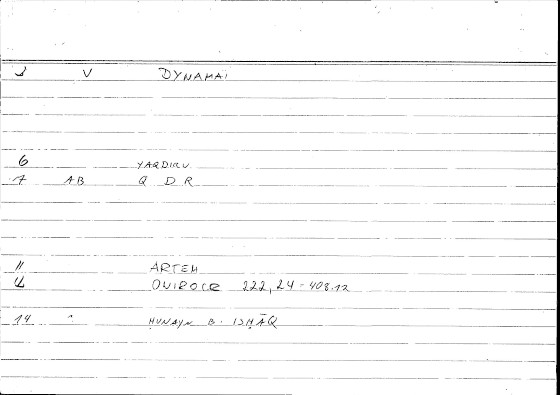 V DYNAMAI
6 YAQDIRU
7 AB Q D R
11 ARTEM
OVIROCR 222,24-408.12
14 ḤUNAYN B. ISḤĀQ